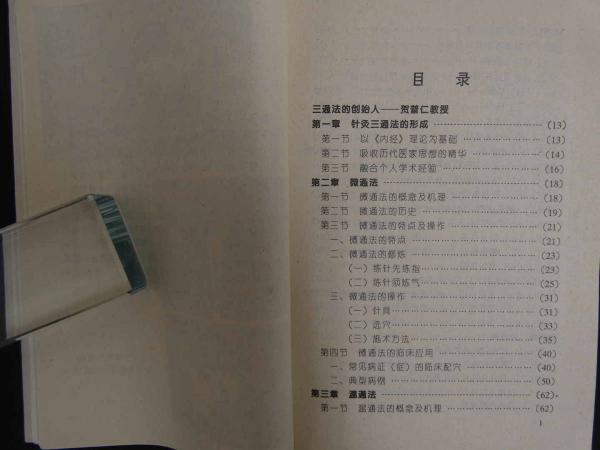 目 录
三通法的创始人——贺普仁教授
第一章 针灸三通法的形成 …………………… (13)
第一节 以《内经》理论为基础 …………………… (13)
第二节 吸收历代医家思想的精华 …………………… (14)
第三节 融合个人学术经验 …………………… (16)
第二章 微通法 …………………… (18)
第一节 微通法的概念及机理 …………………… (18)
第二节 微通法的历史 …………………… (19)
第三节 微通法的特点及操作 …………………… (21)
一、微通法的特点 …………………… (21)
二、微通法的修炼 …………………… (23)
(一)练针先练指 …………………… (23)
(二)练针须练气 …………………… (25)
三、微通法的操作 …………………… (31)
(一)针具 …………………… (31)
(二)选穴 …………………… (33)
(三)施术方法 …………………… (35)
第四节 微通法的临床应用 …………………… (40)
一、常见病证(症)的临床配穴 …………………… (40)
二、典型病例 …………………… (50)
第三章 温通法 …………………… (62)
第一节 温通法的概念及机理 …………………… (62)
1